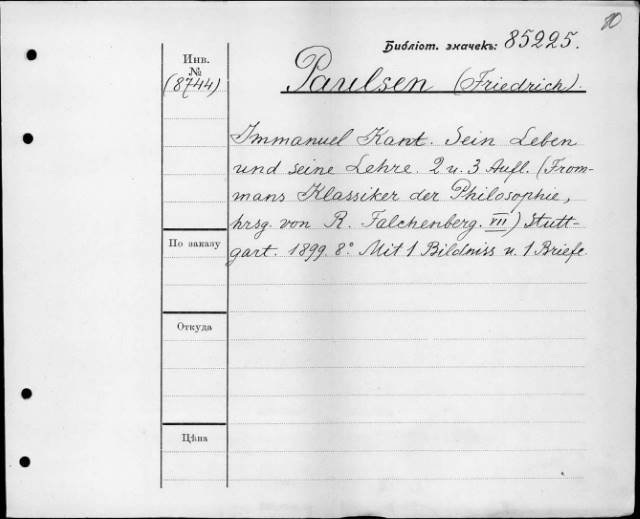 10
Библіот. значекъ: 85225.
Инв.
№
(8744)
Paulsen (Friedrich).
Immanuel Kant. Sein Leben
und seine Lehre. 2 u. 3 Aufl. (From-
mans Klassiker der Philosophie,
hrsg. von R. Falchenberg. VII) Stutt-
gart. 1899. 8° Mit 1 Bildniss u. 1 Briefe
По заказу
Откуда
Цѣна